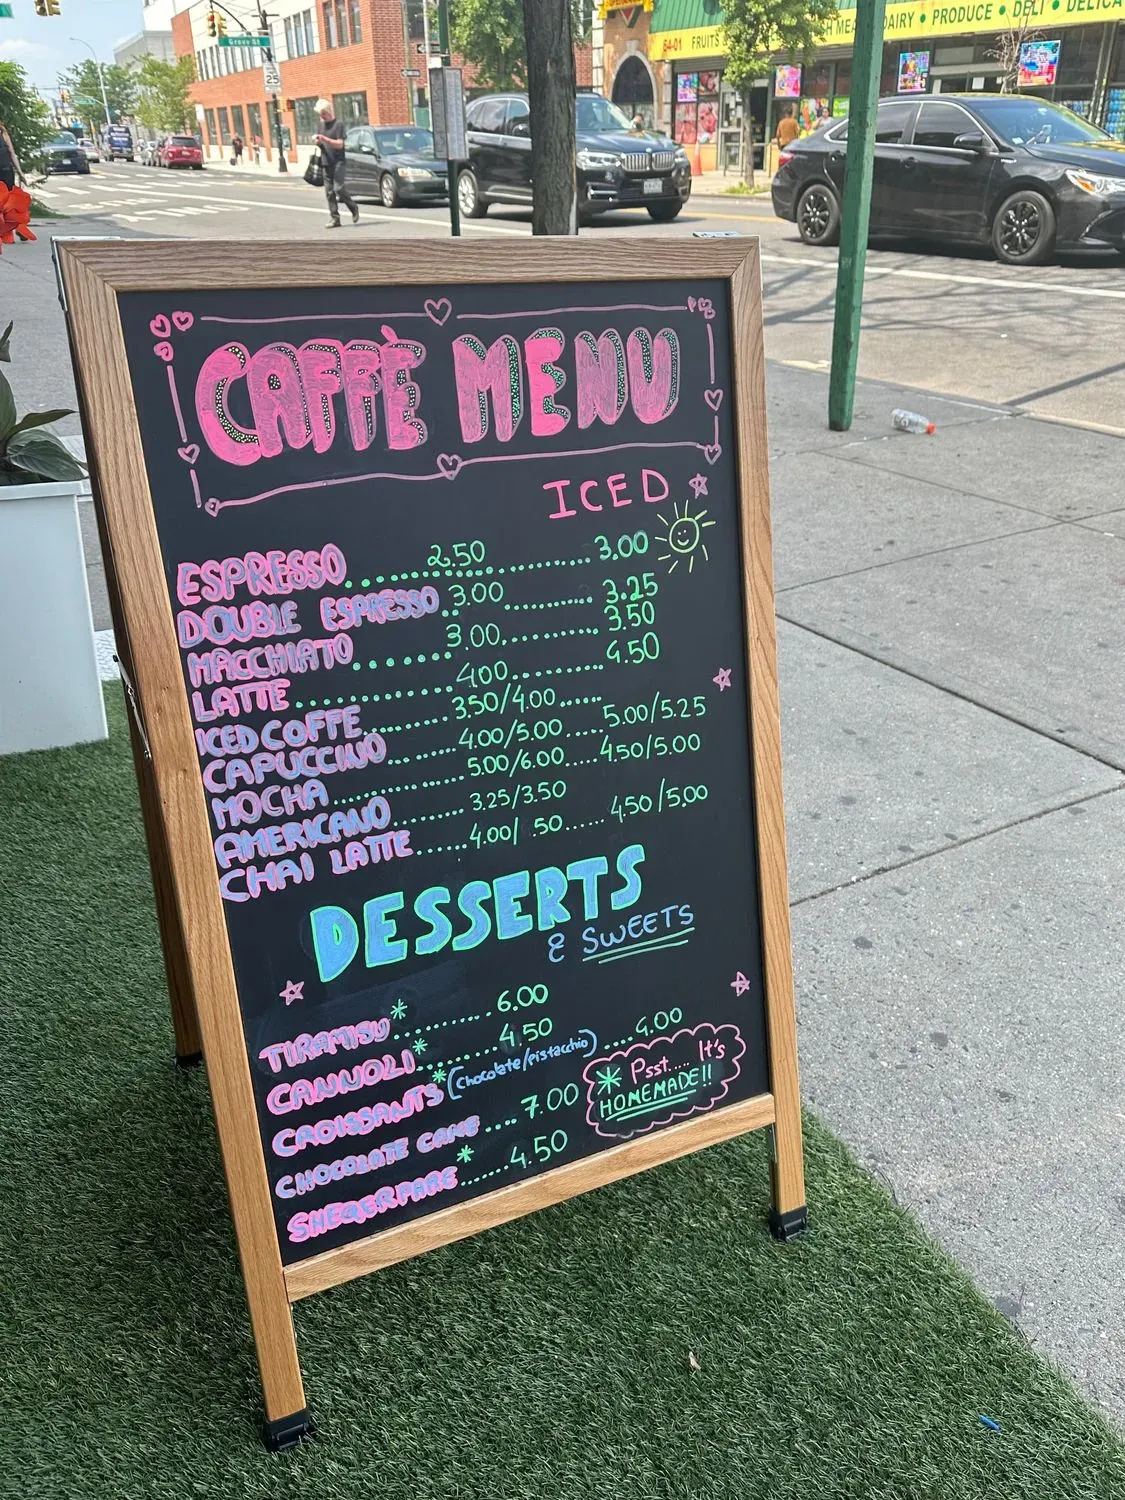 Grove St
SPEED LIMIT 25
64-01 FRUITS
MEAT DAIRY • PRODUCE • DELI • DELICA
CAFFÈ MENU
ICED
ESPRESSO.......2.50..........3.00
DOUBLE ESPRESSO..3.00..........3.25
MACCHIATO......3.00..........3.50
LATTE..........4.00..........4.50
ICED COFFE......3.50/4.00......
CAPUCCINO......4.00/5.00.....5.00/5.25
MOCHA..........5.00/6.00.....4.50/5.00
AMERICANO......3.25/3.50
CHAI LATTE......4.00/ .50......4.50/5.00
DESSERTS
& SWEETS
TIRAMISU*..........6.00
CANNOLI*........4.50
CROISSANTS*(chocolate/pistacchio)....4.00
CHOCOLATE CAKE....7.00
SHEQERPARE*......4.50
* Psst..... It's
HOMEMADE!!